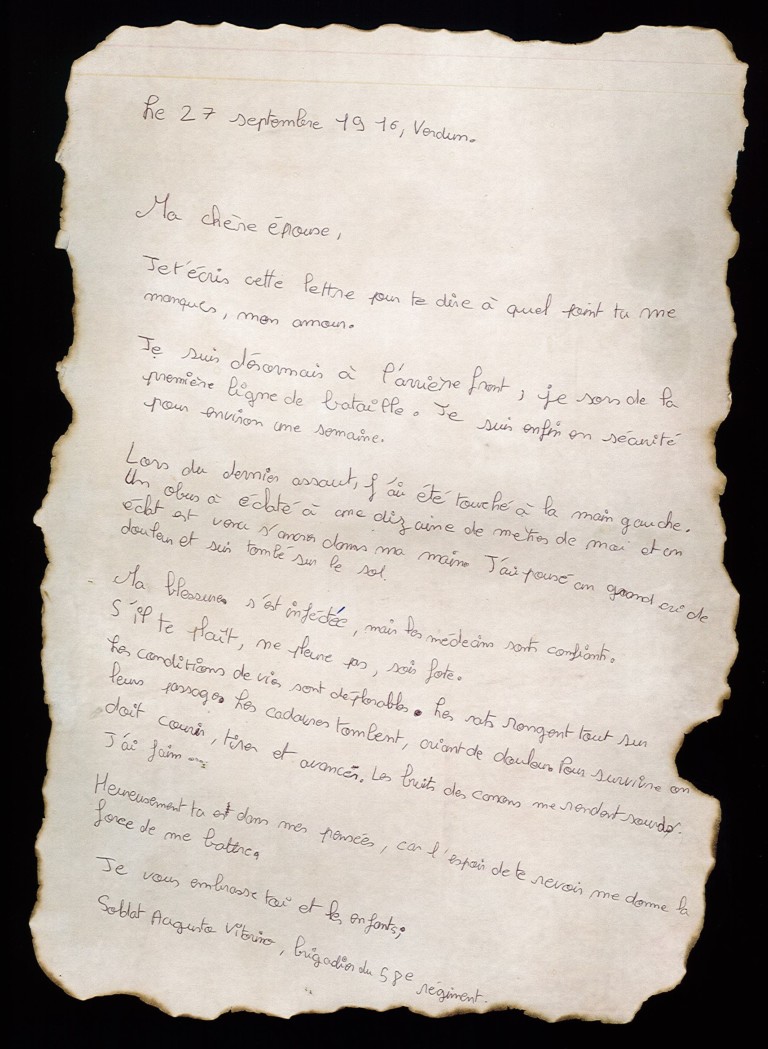 Le 27 septembre 1916, Verdun.
Ma chère épouse,
Je t'écris cette lettre pour te dire à quel point tu me
manques, mon amour.
Je suis désormais à l'arrière front, je sors de la
première ligne de bataille. Je suis enfin en sécurité
pour environ une semaine.
Lors du dernier assaut, j'ai été touché à la main gauche.
Un obus à éclaté à une dizaine de mètres de moi et un
éclat est venu s'ancrer dans ma main. J'ai poussé un grand cri de
douleur et suis tombé sur le sol.
Ma blessure s'est infectée, mais les médecins sont confiants.
S'il te plaît, ne pleure pas, sois forte.
Les conditions de vies sont déplorables. Les rats rongent tout sur
leurs passages. Les cadavres tombent, criant de douleur. Pour survivre on
doit courir, tirer et avancer. Les bruits des canons me rendent sourds.
J'ai faim...
Heureusement tu es dans mes pensées, car l'espoir de te revoir me donne la
force de me battre.
Je vous embrasse toi et les enfants;
Soldat Augusto Vitorino, brigadier du 58e régiment.